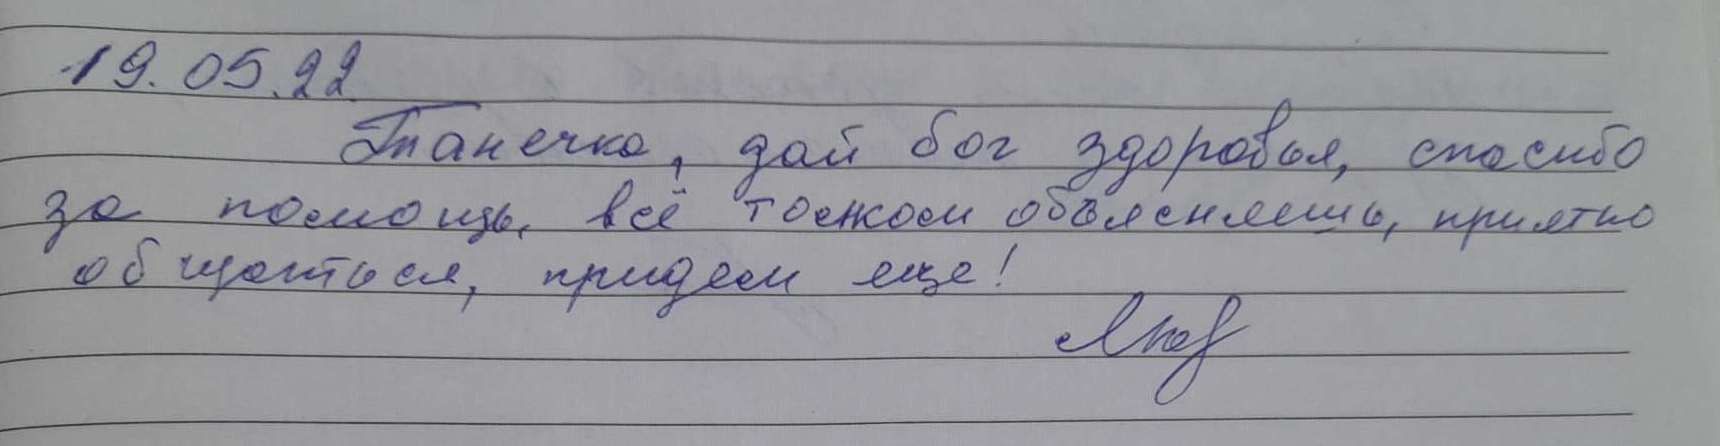 19.05.22
Танечка, дай бог здоровья, спасибо
за помощь, всё толком объясняешь, приятно
общаться, придем еще!